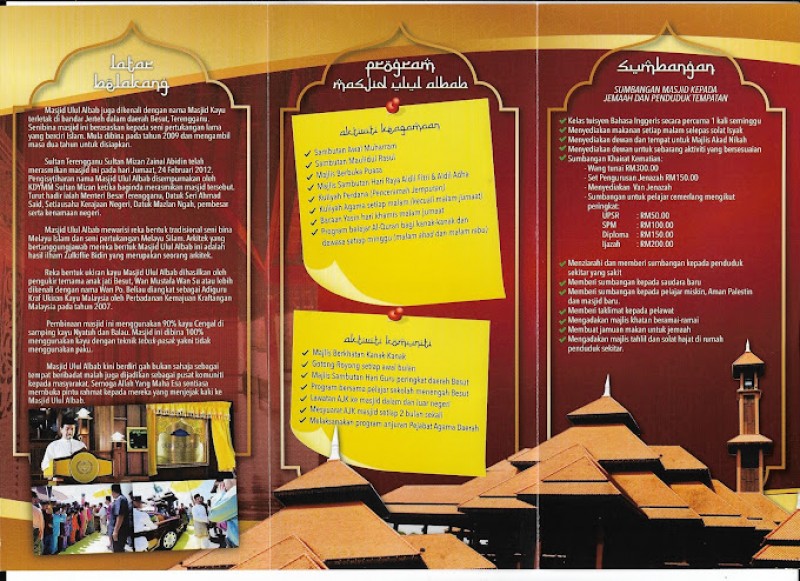 latar
belakang
Masjid Ulul Albab juga dikenali dengan nama Masjid Kayu
terletak di bandar Jerteh dalam daerah Besut, Terengganu.
Senibina masjid ini berasaskan kepada seni pertukangan lama
yang berciri Islam. Mula dibina pada tahun 2009 dan mengambil
masa dua tahun untuk disiapkan.
Sultan Terengganu Sultan Mizan Zainal Abidin telah
merasmikan masjid ini pada hari Jumaat, 24 Februari 2012.
Pengisytiharan nama Masjid Ulul Albab disempurnakan oleh
KDYMM Sultan Mizan ketika baginda merasmikan masjid tersebut.
Turut hadir ialah Menteri Besar Terengganu, Datuk Seri Ahmad
Said, Setiausaha Kerajaan Negeri, Datuk Mazlan Ngah, pembesar
serta kenamaan negeri.
Masjid Ulul Albab mewarisi reka bentuk tradisional seni bina
Melayu Islam dan seni pertukangan Melayu Silam. Arkitek yang
bertanggungjawab mereka bentuk Masjid Ulul Albab ini adalah
hasil ilham Zulkiflie Bidin yang merupakan seorang arkitek.
Reka bentuk ukiran kayu Masjid Ulul Albab dihasilkan oleh
pengukir ternama anak jati Besut, Wan Mustafa Wan Su atau lebih
dikenali dengan nama Wan Po. Beliau diangkat sebagai Adiguru
Kraf Ukiran Kayu Malaysia oleh Perbadanan Kemajuan Kraftangan
Malaysia pada tahun 2007.
Pembinaan masjid ini menggunakan 90% kayu Cengal di
samping kayu Nyatuh dan Balau. Masjid ini dibina 100%
menggunakan kayu dengan teknik tebuk pasak yakni tidak
menggunakan paku.
Masjid Ulul Albab kini berdiri gah bukan sahaja sebagai
tempat beribadat malah juga dijadikan sebagai pusat komuniti
kepada masyarakat. Semoga Allah Yang Maha Esa sentiasa
membuka pintu rahmat kepada mereka yang menjejak kaki ke
Masjid Ulul Albab.
program
masjid ulul albab
aktiviti keagamaan
✓ Sambutan Awal Muharram
✓ Sambutan Maulidul Rasul
✓ Majlis Berbuka Puasa
✓ Majlis Sambutan Hari Raya Aidil Fitri & Aidil Adha
✓ Kuliyah Perdana (Penceramah Jemputan)
✓ Kuliyah Agama setiap malam (kecuali malam jumaat)
✓ Bacaan Yasin hari khamis malam jumaat
✓ Program belajar Al-Quran bagi kanak-kanak dan
dewasa setiap minggu (malam ahad dan malam rabu)
aktiviti komuniti
✓ Majlis Berkhatan Kanak-Kanak
✓ Gotong Royong setiap awal bulan
✓ Majlis Sambutan Hari Guru peringkat daerah Besut
✓ Program bersama pelajar sekolah menengah Besut
✓ Lawatan AJK ke masjid dalam dan luar negeri
✓ Mesyuarat AJK masjid setiap 2 bulan sekali
✓ Melaksanakan program anjuran Pejabat Agama Daerah
sumbangan
SUMBANGAN MASJID KEPADA
JEMAAH DAN PENDUDUK TEMPATAN
✓ Kelas tuisyen Bahasa Inggeris secara percuma 1 kali seminggu
✓ Menyediakan makanan setiap malam selepas solat Isyak
✓ Menyediakan dewan dan tempat untuk Majlis Akad Nikah
✓ Menyediakan dewan untuk sebarang aktiviti yang bersesuaian
✓ Sumbangan Khairat Kematian:
- Wang tunai RM300.00
- Set Pengurusan Jenazah RM150.00
- Menyediakan Van Jenazah
- Sumbangan untuk pelajar cemerlang mengikut
peringkat:
UPSR : RM50.00
SPM : RM100.00
Diploma : RM150.00
Ijazah : RM200.00
✓ Menziarahi dan memberi sumbangan kepada penduduk
sekitar yang sakit
✓ Memberi sumbangan kepada saudara baru
✓ Memberi sumbangan kepada pelajar miskin, Aman Palestin
dan masjid baru.
✓ Memberi taklimat kepada pelawat
✓ Mengadakan majlis khatan beramai-ramai
✓ Membuat jamuan makan untuk jemaah
✓ Mengadakan majlis tahlil dan solat hajat di rumah
penduduk sekitar.